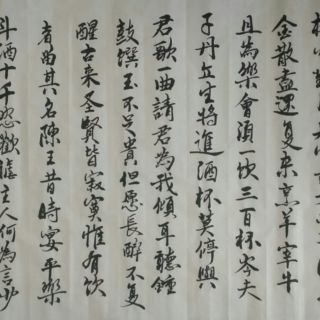 金散盡還復来烹羊宰牛
且為樂會須一飲三百杯岑夫
子丹丘生將進酒杯莫停與
君歌一曲請君為我傾耳聽鍾
鼓饌玉不足貴但愿長醉不复
醒古来圣賢皆寂寞惟有飲
者留其名陳王昔時宴平樂
斗酒十千恣歡謔主人何為言少